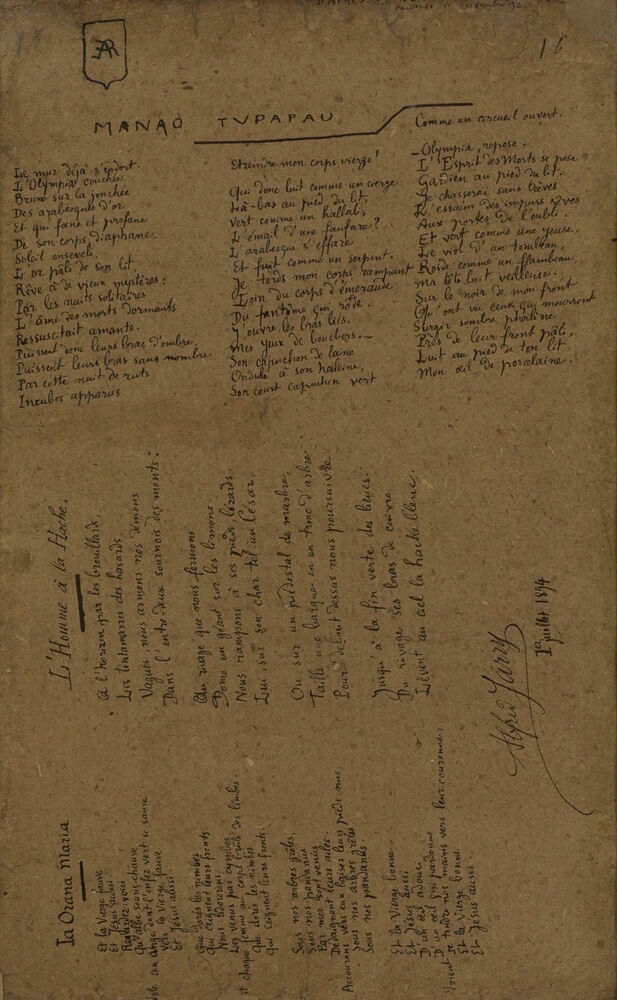 16
MANAO TVPAPAU
Le mur déjà s'endort.
L'Olympia couchée
Brune sur la jonchée
Des arabesques d'or
Et qui fane et profane
De son corps diaphane
Soleil enseveli
L'or pâli de son lit,
Rêve à de vieux mystères :
Par les nuits solitaires
L'âme des morts dormants
Ressuscitait amants.
Puissent donc leurs bras d'ombre,
Puissent leurs bras sans nombre
Par cette nuit de ruts
Incubes apparus
Etreindre mon corps vierge !
Qui donc luit comme un cierge
Là-bas au pied du lit,
Vert comme un hallali,
L'émail d'une fanfare ?
L'arabesque s'effare
Et fuit comme un serpent.
Je tords mon corps rampant
Loin du corps d'émeraude
Du fantôme qui rôde.
J'ouvre les bras liés.
Mes yeux de boucliers.
Son capuchon de laine
Ondule à son haleine,
Son court capuchon vert
Comme un cercueil ouvert.
— Olympia, repose.
L'Esprit des Morts se pose
Gardien au pied du lit.
Je chasserai sans trèves
L'essaim des impurs rêves
Aux portes de l'oubli.
Et vert comme une yeuse,
Le viol d'un tombeau,
Roide comme un flambeau
Ma tête luit veilleuse.
Sur le noir de mon front
Qu'ont vu ceux qui mourront
Surgir sombre phalène
Près de leur front pâli,
Luit au pied de ton lit
Mon œil de porcelaine.
L'Homme à la Hache.
A l'horizon, par les brouillards,
Les tintamarres des hasards,
Vagues, nous armons nos démons
Dans l'entre-deux sournois des monts :
Au rivage que nous fermons
Dome un géant sur les limons.
Nous rampons à ses pieds, lézards.
Lui, sur son char tel un César,
Ou sur un piédestal de marbre,
Taille une barque en un tronc d'arbre
Pour debout dessus nous poursuivre
Jusqu'à la fin verte des lieues.
Du rivage ses bras de cuivre
Lèvent au ciel la hache bleue.
Alfred Jarry
1er juillet 1894
Ia Orana Maria
Et la Vierge fauve
Et Jésus aussi
Regardez-vous
vers la Vierge fauve
Et Jésus aussi
Que dorés les nimbes
Qui ceignent leurs fronts.
Nous tournons
Que dorés les nimbes
Qui ceignent leurs fronts.
Sous nos arbres grêles,
Sous nos pandanus
Par mer sont venus
Accourons vers eux baiser leurs pieds nus,
Sous nos arbres grêles
Sous nos pandanus.
Et la Vierge bonne
Et Jésus aussi
D'un œil qui pardonne
Voient se tendre nos mains vers leur couronne,
Et la Vierge bonne
Et Jésus aussi.